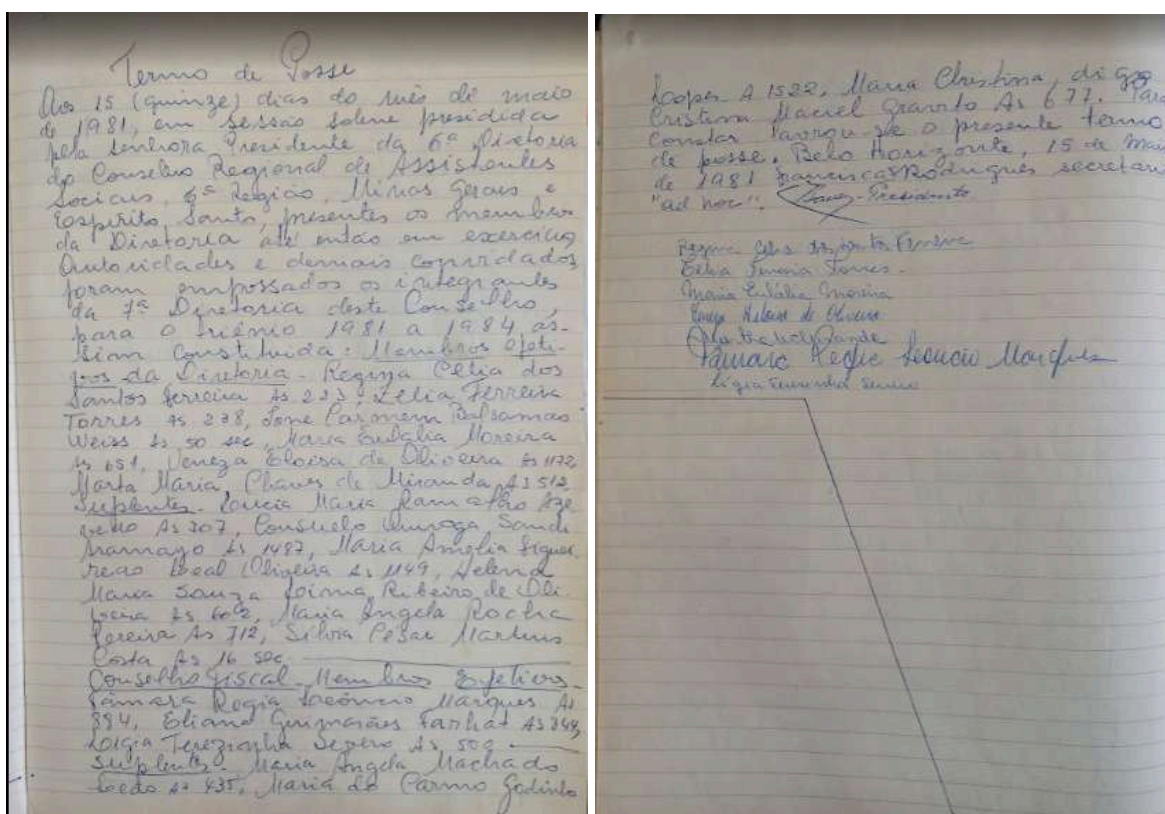 Termo de Posse
Aos 15 (quinze) dias do mês de maio
de 1981, em sessão solene presidida
pela senhora Presidente da 6ª Diretoria
do Conselho Regional de Assistentes
Sociais, 6ª Região, Minas Gerais e
Espirito Santo, presentes os membros
da Diretoria até então em exercício,
autoridades e demais convidados
foram empossados os integrantes
da 7ª Diretoria deste Conselho,
para o triênio 1981 a 1984 as-
sim constituida: Membros efeti-
vos da Diretoria - Regina Célia dos
Santos Ferreira As 223, Zélia Ferreira
Torres As 238, Ione Carmem
Weiss As 50 sec, Maria Eulália Moreira
As 651, Veneza Eloisa de Oliveira As 1172
Marta Maria Chaves de Miranda As 512
Suplentes - Lucia Maria Ramalho Aze
vedo As 307, Consuelo Quiroga
As 1487, Maria Amélia
Leal Oliveira As 1149, Helena
Maria Souza Joima Ribeiro de Oli
veira As 602, Maria Angela Rocha
Pereira As 712, Silvia Cesar Martins
Costa As 16 sec
Conselho Fiscal - Membros Efetivos -
Tâmara Regia Leôncio Marques As
884, Eliana Guimarães Farhat As 349,
Ligia Terezinha Severo As 500
Suplentes - Maria Angela Machado
As 435, Maria do Carmo Godinho
Lopes A 1522, Maria Christina, digo
Cristina Maciel Gravito As 677. Para
constar lavrou-se o presente termo
de posse. Belo Horizonte, 15 de Maio
de 1981 Francisca Rodrigues secretaria
"ad hoc". Presidente
Regina Célia dos Santos Ferreira
Zélia Ferreira Torres -
Maria Eulália Moreira
Veneza Heloisa de Oliveira
Tamara Regia Leoncio Marques
Ligia Terezinha Severo